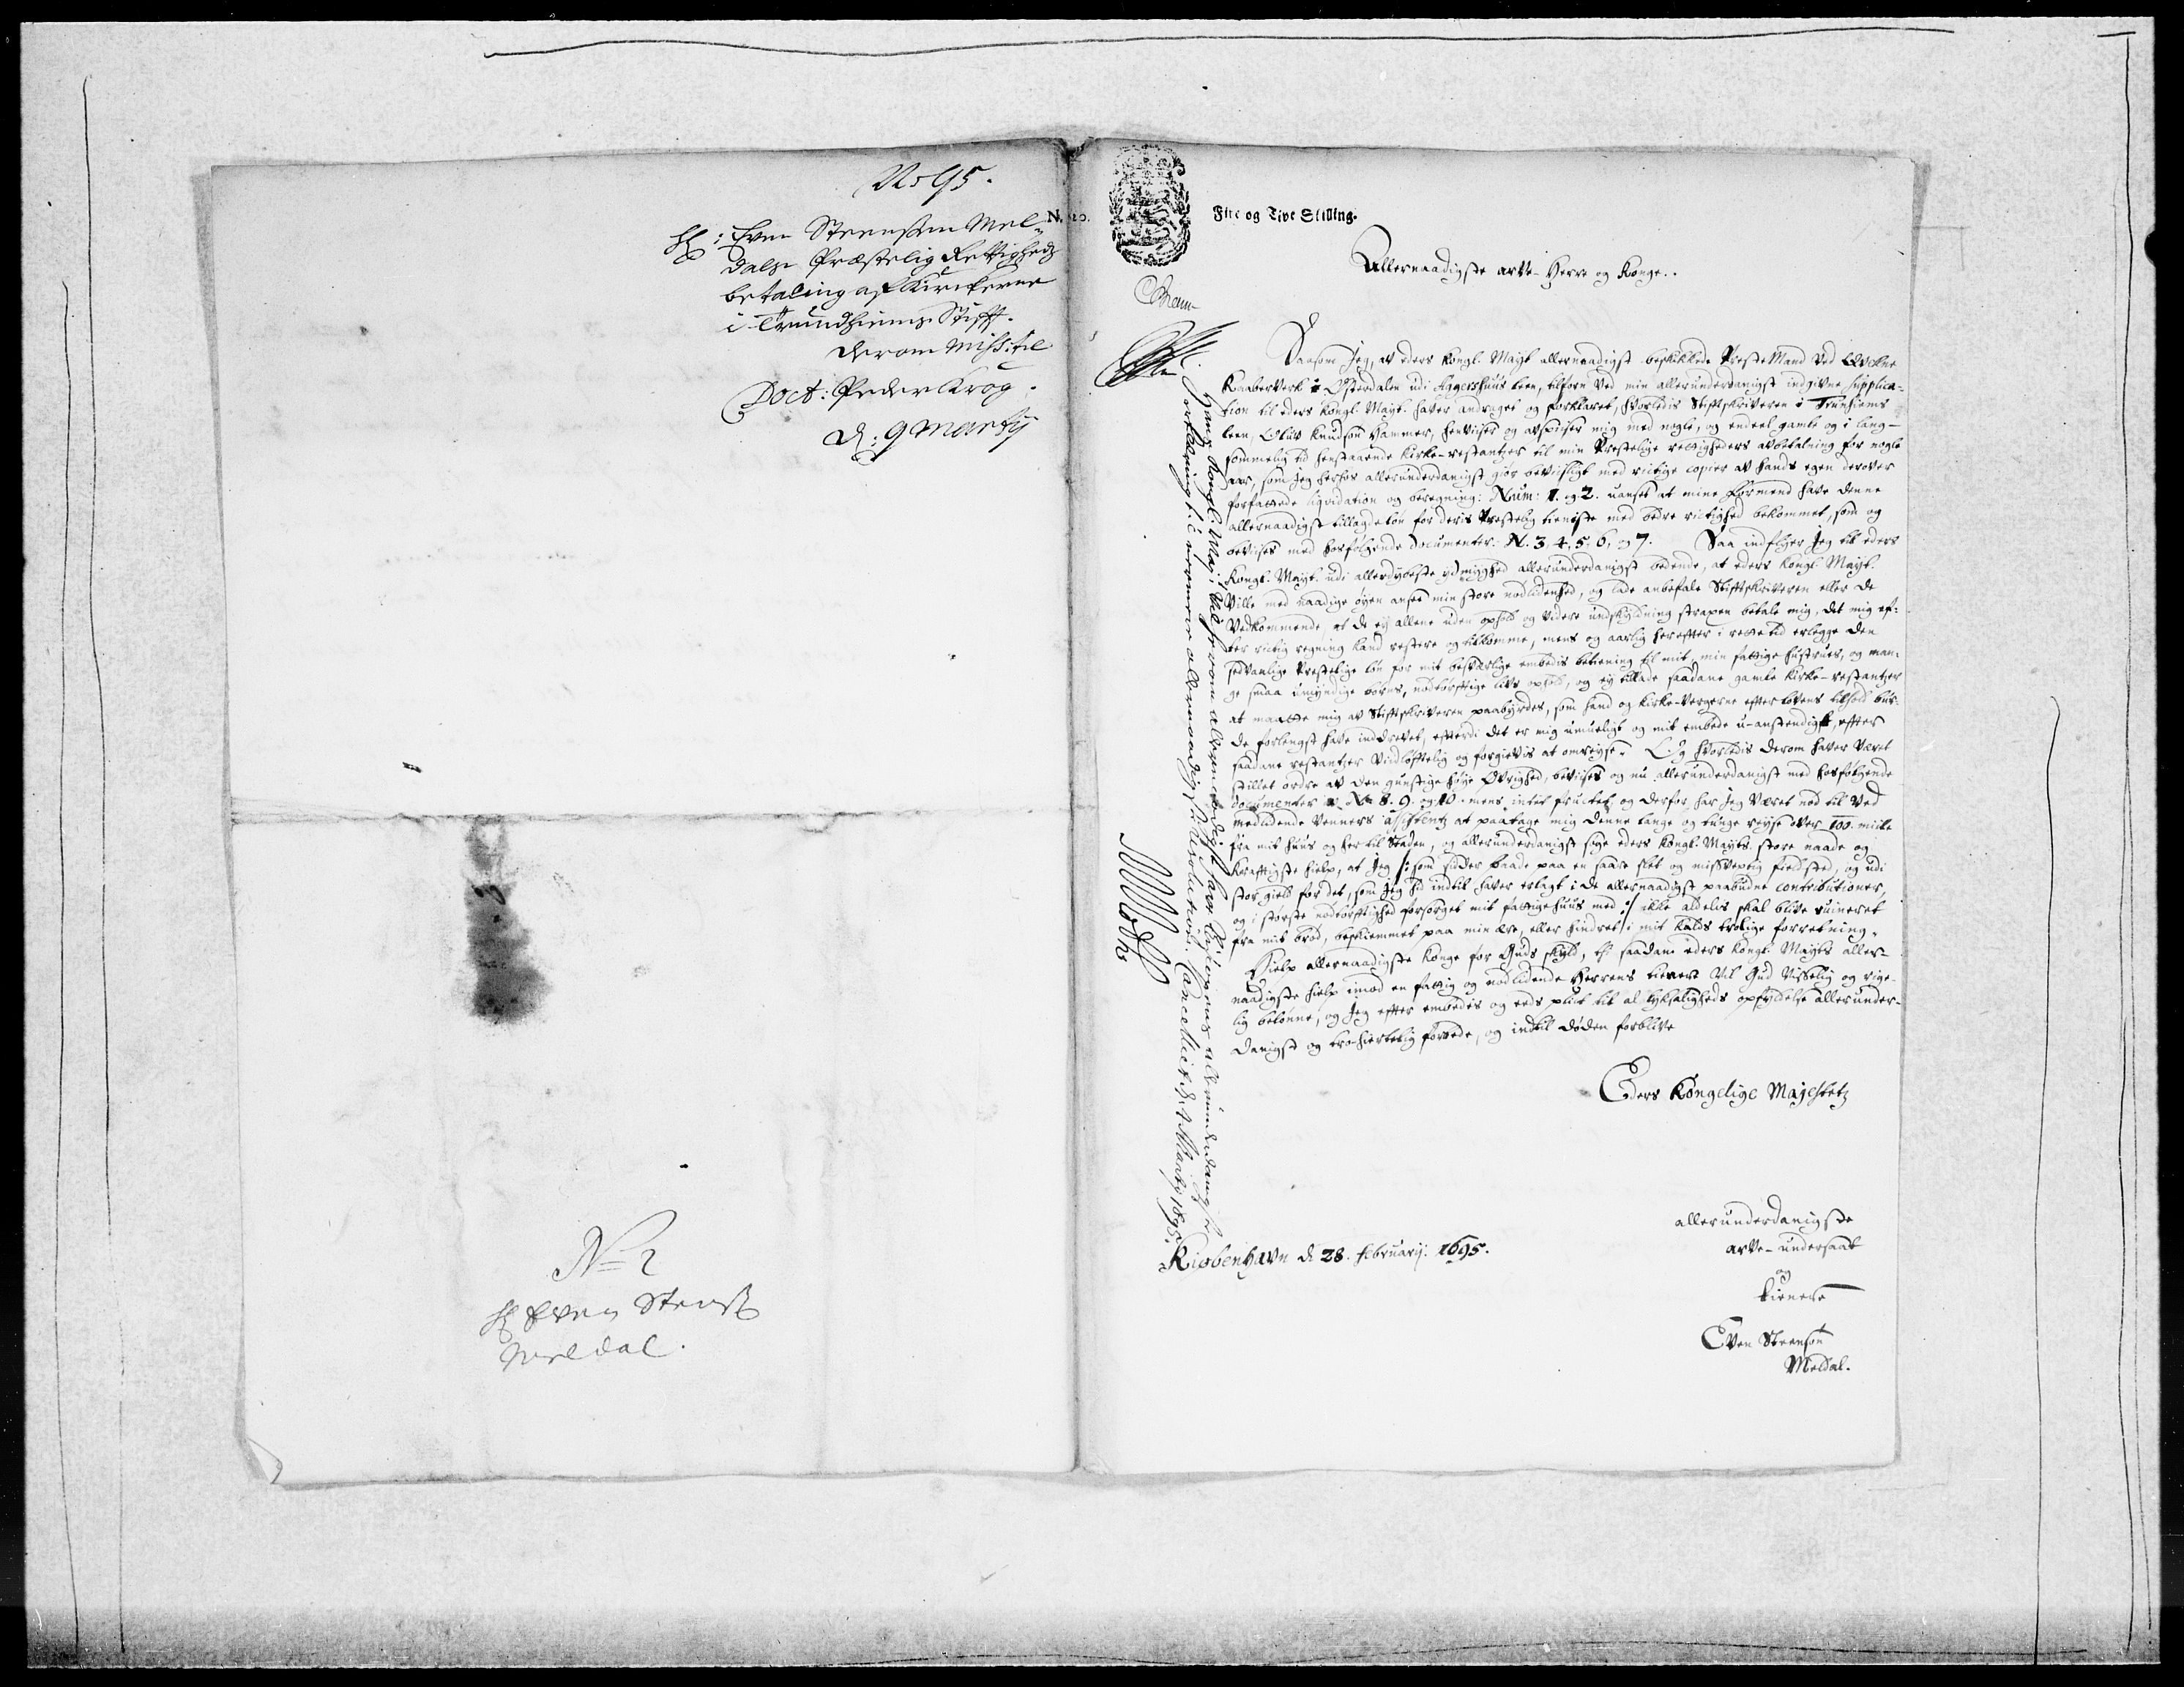 No 95.
H: Even Steenssen Mel-
dalss Præstelig Rettigheds
betaling af Kirckerne
i Trundhiems Stifft.
derom Miss: til
Doct: Peder Krog.
d: 9 Martij
No 2
H Even Stenss
Meldal.
N. 20.
Fire og Tive Skilling.
Allernaadigste arve-Herre og Konge..
Saasom Jeg, av eders Kongl. Mayt allernaadigst beskikkede Preste Mand ved Qvekne
Kaaberverk i Østerdalen udi Aggershuus leen, tilforn ved min allerunderdanigst indgivne supplica-
tion til eders Kongl. Mayt. haver andraget og forklaret, hvorledis Stiftskriveren i Trunhiems
leen, Oluv Knudsøn Hammer, henviser og avspiser mig med nogle, og endeel gamle og i lang-
sommelig tid henstaaende kirke-restantzer til min Prestelige rettigheders avbetalning for nogle
aar, som jeg herhos allerunderdanigst giør beviisligt med rictige copier av hands egen derover
forfattede liqvidation og beregning: Num: 1. og 2. uanset at mine Formend have denne
allernaadigst tillagde løn for deris Prestelig tieniste med bedre rictighed bekommet, som og
bevises med hosfølgende documenter N. 3, 4, 5, 6, og 7. Saa indflyer Jeg til eders
Kongl. Mayt. udi allerdybeste ydmyghed allerunderdanigst bedende, at eders Kongl. Mayt.
Ville med naadige øyen ansee min store nodlidenhed, og lade anbefale Stiftskriveren eller de
Vedkommende, at de ey allene uden ophold og videre undskyldning straxen betale mig, det mig ef-
ter rictig regning kand restere og tilkomme, mens og aarlig herefter i rette tid erlegge den
sedvanlige Prestelige løn for mit besværlige embedis betiening til mit, min fattige hustrues, og man-
ge smaa umyndige børns, nødtørftige livs ophold, og ey tillade saadane gamle kirke-restantzer
at maatte mig av Stiftskriveren paabyrdes, som hand og kirke-vergerne efter lovens tilhold bur-
de forlengst have inddrevet, efterdi det er mig umueligt og mit embede u-anstendigt, efter
saadane restantzer vidløftelig og forgievis at omreyse. Og hvorledis derom haver været
stillet ordre av den gunstige høye Øvrighed, bevises og nu allerunderdanigst med hosfølgende
documenter N. 8. 9. og 10. mens intet fructet, og derfor har jeg været nød til ved
medlidende venners assistentz at paatage mig denne lange og tunge reyse over 100. miile
fra mit huus og her til Staden, og allerunderdanigst søge eders Kongl. Mayts. store naade og
kraftigste hielp, at Jeg /: som sidder baade paa en saare slet og misvextig fieldsted, og udi
stor gield for det, som jeg hid indtil haver erlagt i de allernaadigst paabudne contributioner,
og i største nødtørftighed forsørget mit fattige huus med :/ ikke aldelis skal blive ruineret
fra mit brød, beskiemmet paa min ære, eller hindret i mit kalds trolige forretning.
Hielp allernaadigste Konge for Guds skyld, thi saadan eders Kongl. Mayts aller-
naadigste hielp imod en fattig og nødlidende Herrens tienere vil Gud visselig og rige-
lig belønne, og Jeg efter embedes og eeds plict til al lyksaligheds opfyldelse allerunder-
danigst og tro-hiertelig forbede, og indtil døden forblive
Eders Kongelige Majestets
allerunderdanigste
arve-undersaat
og
tienere
Even Steensøn
Meldal.
Kiøbenhavn d 28. februarij. 1695.
Hans Kongl: Maj: vil herom allernaadigst have Bispens allerunderdanigste
erklering til nermere allernaadigste Resolution. Cancelliet d: Martij 1695.